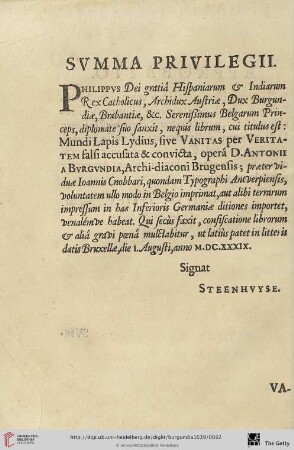 SVMMA PRIVILEGII.
PHILIPPVS Dei gratiâ Hispaniarum & Indiarum
Rex Catholicus, Archidux Austriæ, Dux Burgun-
diæ, Brabantiæ, &c. Serenissimus Belgarum Prin-
ceps, diplomate suo sanxit, nequis librum, cui titulus est:
Mundi Lapis Lydius, sive VANITAS per VERITA-
TEM falsi accusata & convicta, operâ D. ANTONII
A BVRGVNDIA, Archi-diaconi Brugensis; præter vi-
duæ Ioannis Cnobbari, quondam Typographi Antverpiensis,
voluntatem ullo modo in Belgio imprimat, aut alibi terrarum
impressum in has Inferioris Germaniæ ditiones importet,
venalémve habeat. Qui secùs faxit, confiscatione librorum
& aliâ gravi pœnâ mulctabitur, ut latiùs patet in litteris
datis Bruxellæ, die 1. Augusti, anno M.DC.XXXIX.
Signat
STEENHVYSE.
VA-
http://digi.ub.uni-heidelberg.de/diglit/burgundia1639/0032
© Universitätsbibliothek Heidelberg
UNIVERSITÄTS-
BIBLIOTHEK
HEIDELBERG
The Getty